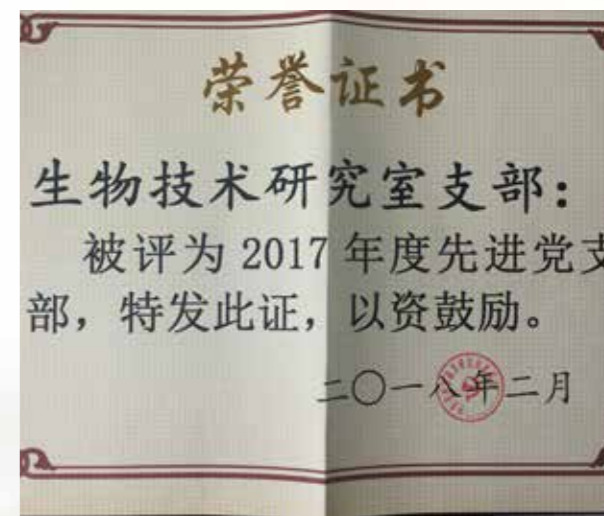 荣誉证书
生物技术研究室支部：
被评为 2017 年度先进党支
部，特发此证，以资鼓励。
二〇一八年二月